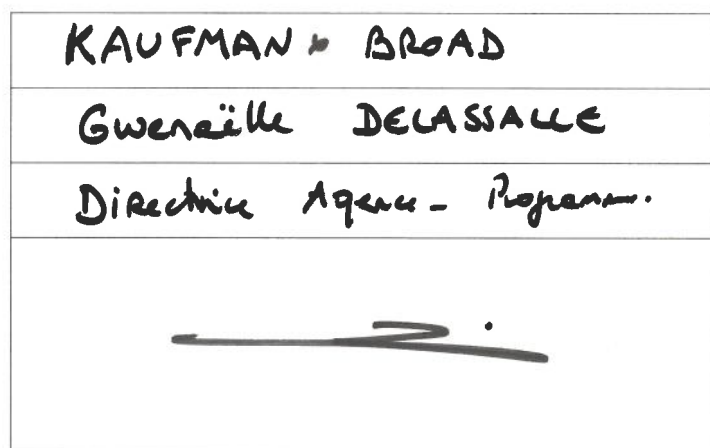 KAUFMAN & BROAD
Gwenaëlle DELASSALLE
Directrice Agence - Programm.